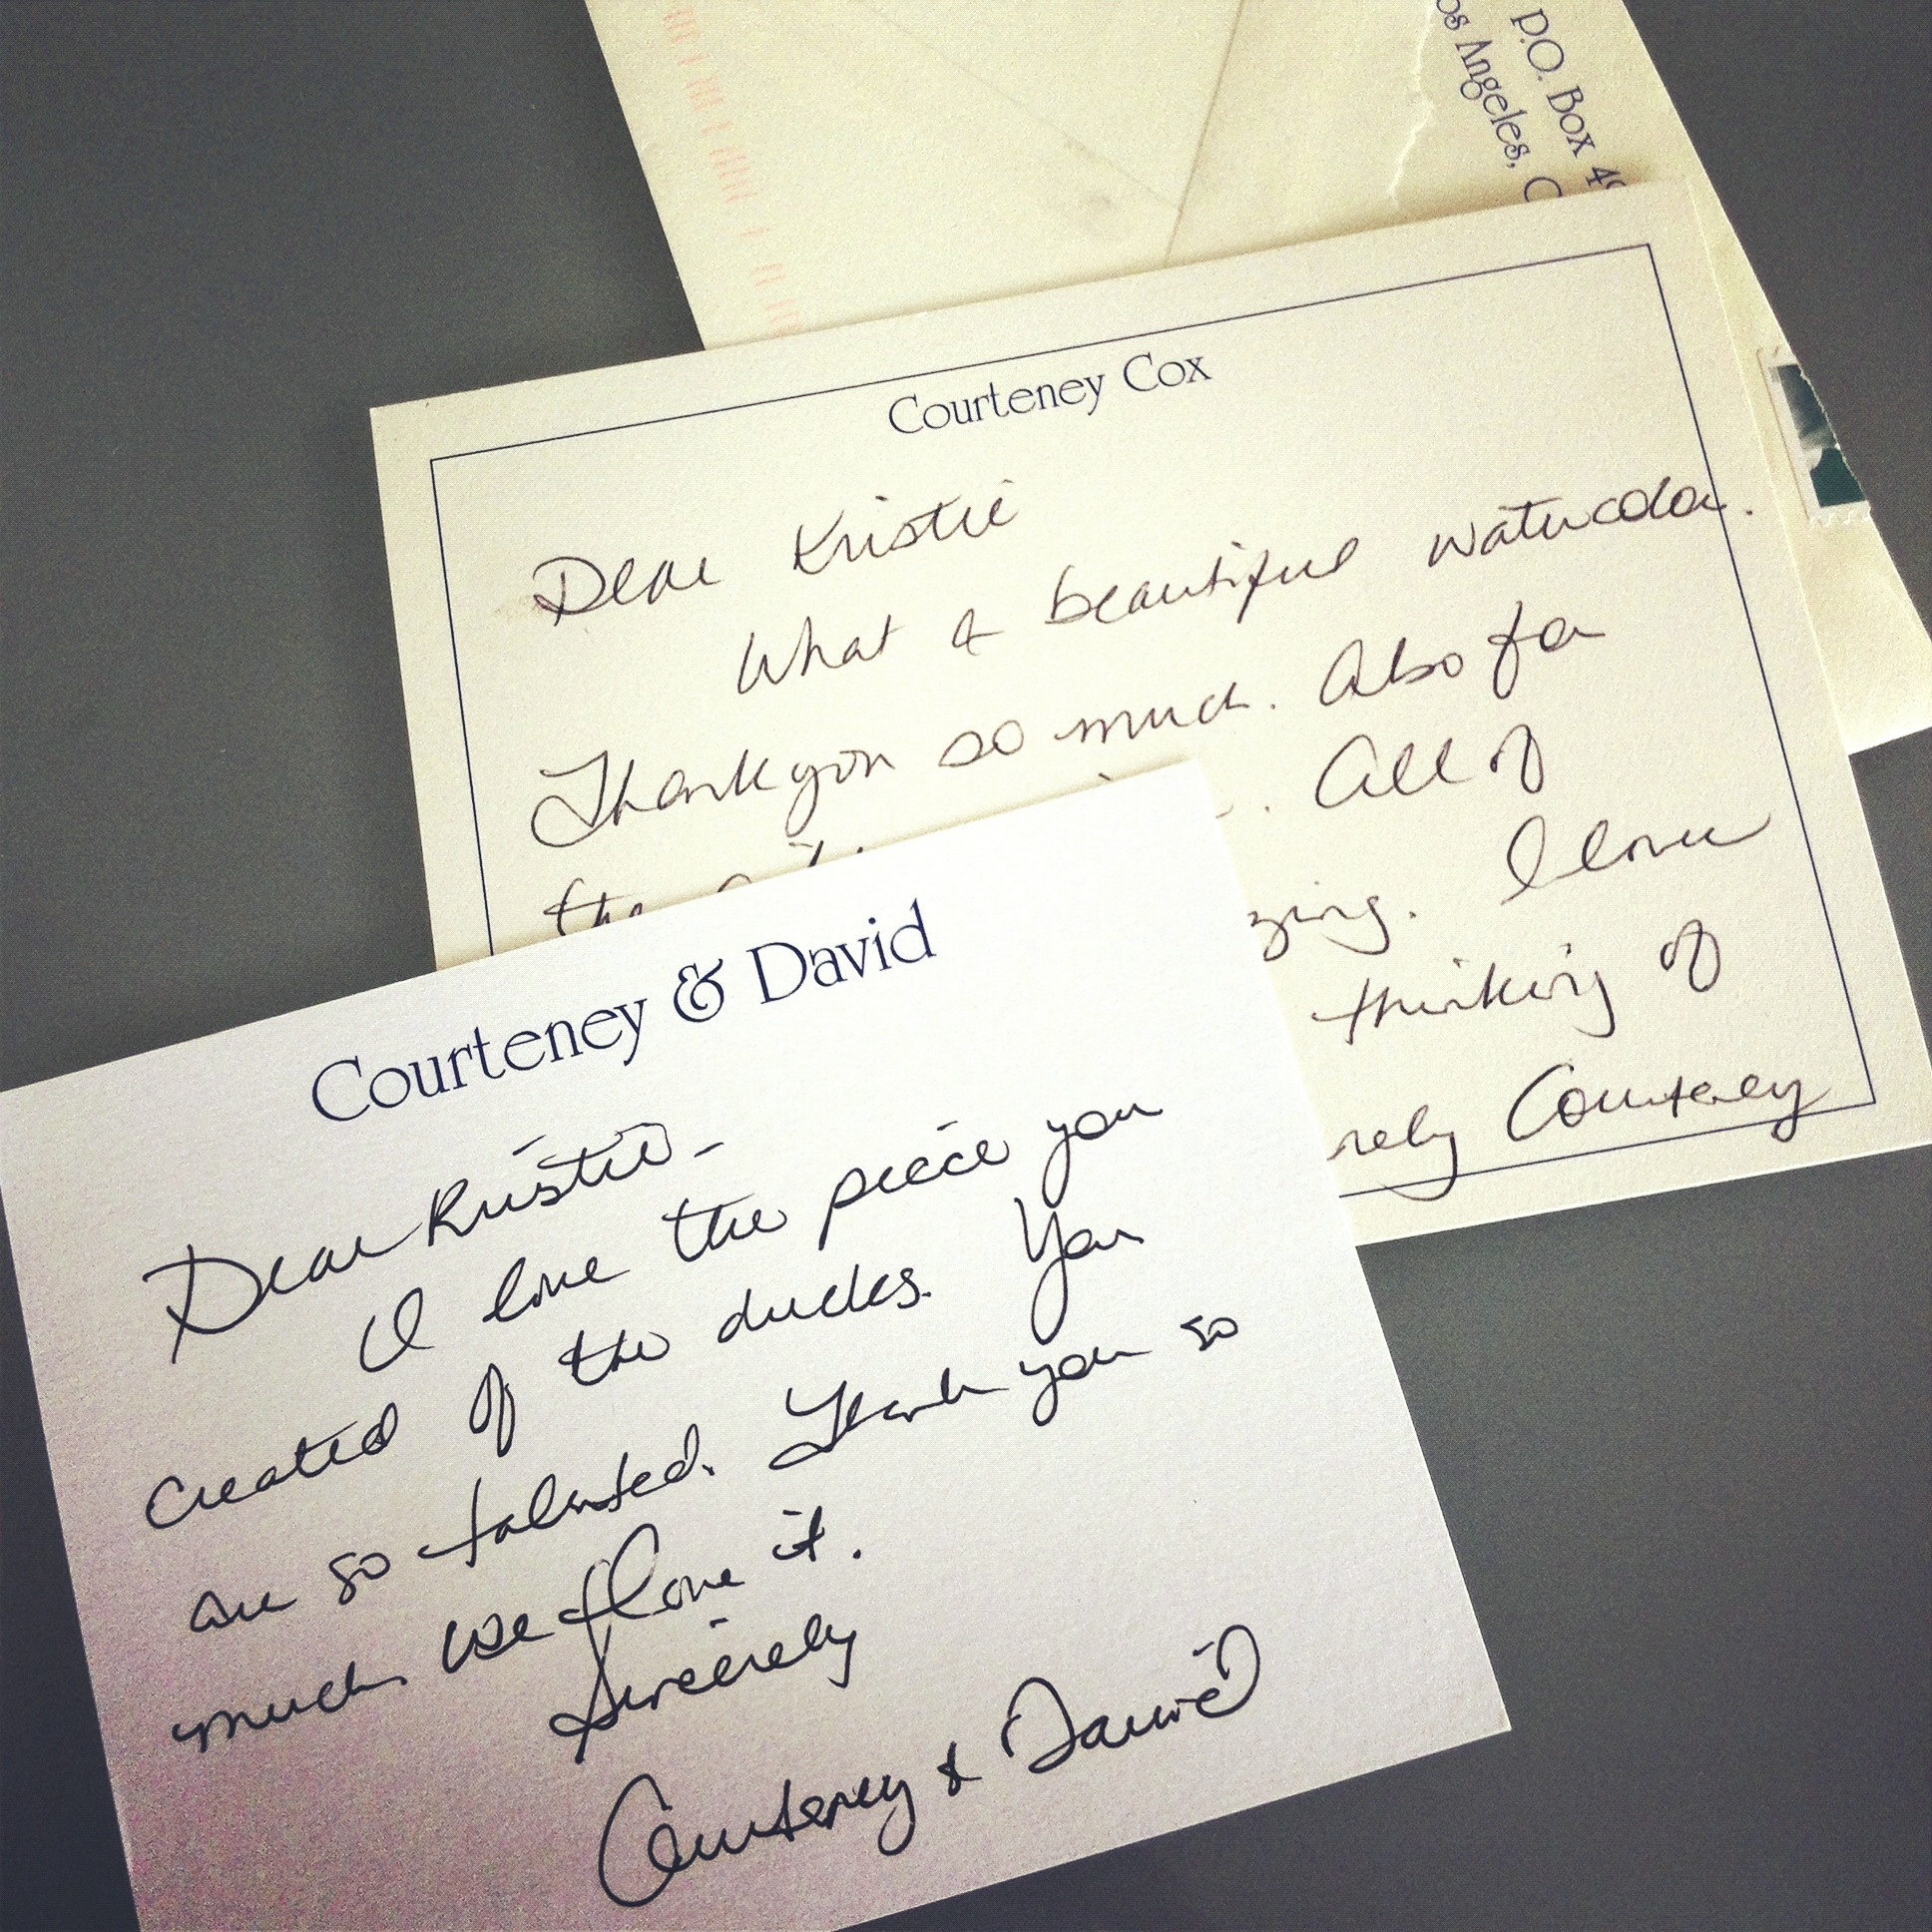 P.O. Box 49
os Angeles, C
Courteney Cox
Dear Kristie
What a beautiful watercolor.
Thank you so much. Also for
the
. All of
zing. I love
thinking of
rely Courteney
Courteney & David
Dear Kristie-
I love the piece you
created of the ducks. You
are so talented. Thank you so
much. We love it.
Sincerely
Courteney & David